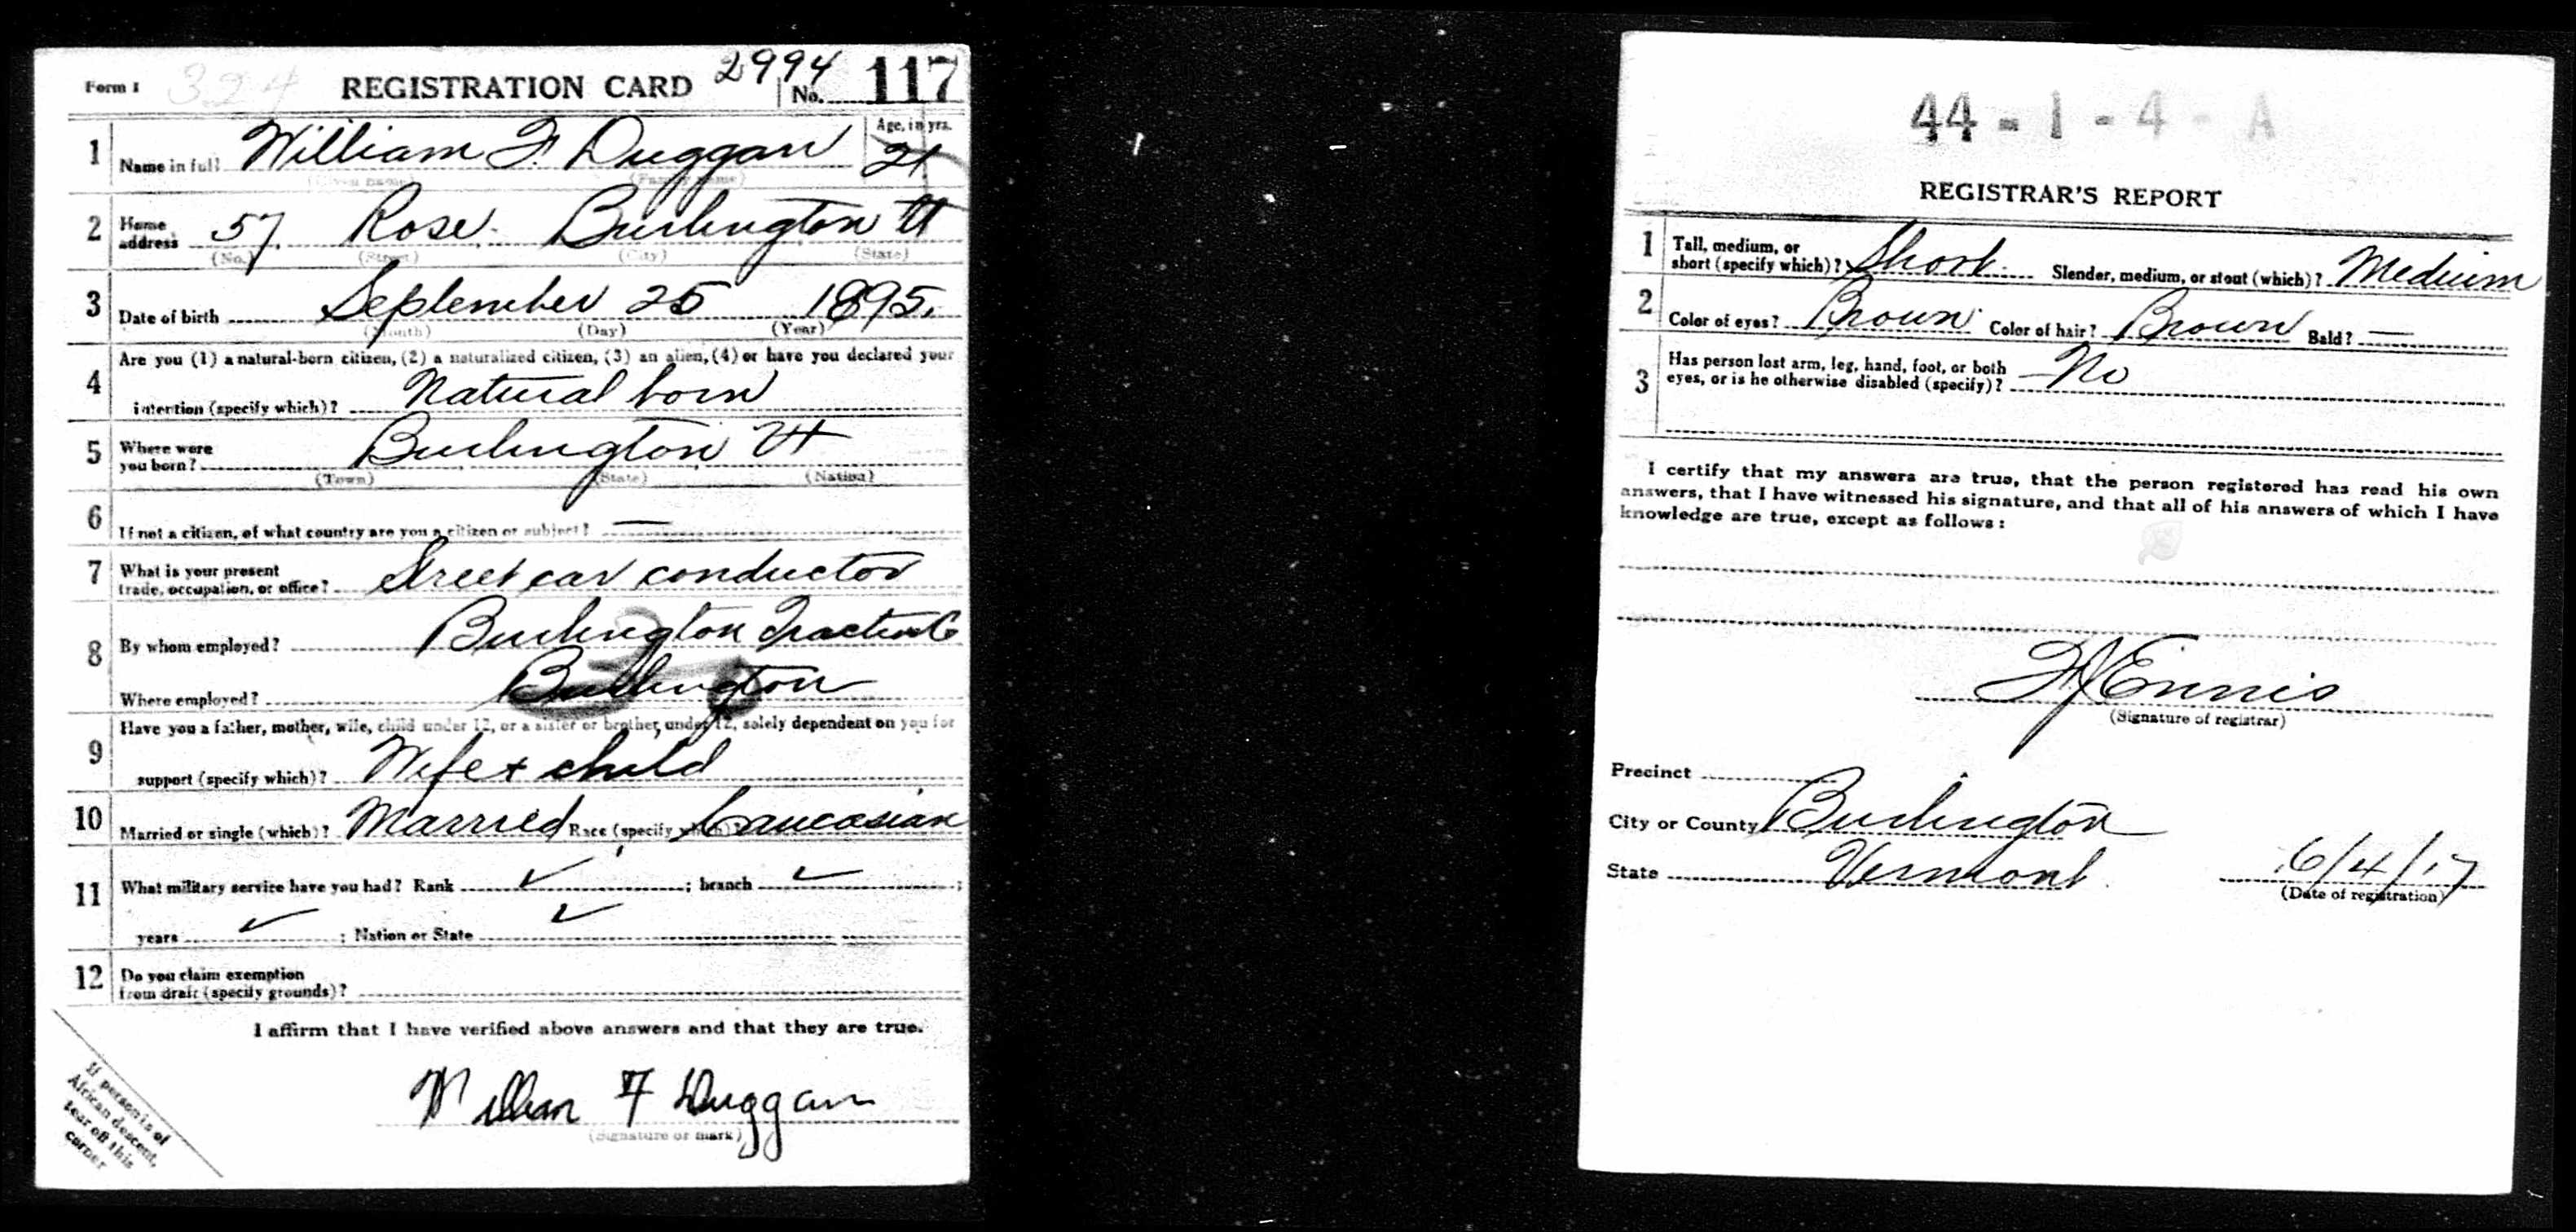 Form 1 324 REGISTRATION CARD 2994 No. 117
1 Name in full William F. Duggan Age, in yrs. 21
(Given name) (Family name)
2 Home address 57 Rose Burlington Vt
(No.) (Street) (City) (State)
3 Date of birth September 25 1895.
(Month) (Day) (Year)
Are you (1) a natural-born citizen, (2) a naturalized citizen, (3) an alien, (4) or have you declared your
4 intention (specify which)? Natural born
5 Where were you born? Burlington Vt
(Town) (State) (Nation)
6 If not a citizen, of what country are you a citizen or subject? —
7 What is your present trade, occupation, or office? Street car conductor
8 By whom employed? Burlington Traction Co
Where employed? Burlington
Have you a father, mother, wife, child under 12, or a sister or brother under 12, solely dependent on you for
9 support (specify which)? Wife + child
10 Married or single (which)? Married Race (specify which)? Caucasian
11 What military service have you had? Rank ✓ ; branch ✓ ;
years ✓ ; Nation or State ✓
12 Do you claim exemption from draft (specify grounds)?
I affirm that I have verified above answers and that they are true.
William F Duggan
(Signature or mark)
If person is of
African descent,
tear off this
corner
44 - 1 - 4 - A
REGISTRAR'S REPORT
1 Tall, medium, or short (specify which)? Short. Slender, medium, or stout (which)? Medium
2 Color of eyes? Brown Color of hair? Brown Bald? —
3 Has person lost arm, leg, hand, foot, or both eyes, or is he otherwise disabled (specify)? No
I certify that my answers are true, that the person registered has read his own
answers, that I have witnessed his signature, and that all of his answers of which I have
knowledge are true, except as follows:
F J Ennis
(Signature of registrar)
Precinct
City or County Burlington
State Vermont 6/4/17
(Date of registration)